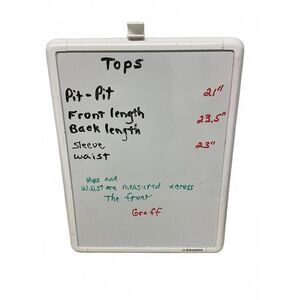 Tops
Pit-Pit 21"
Front length 23.5"
Back length
Sleeve 23"
waist
Hips and
waist are measured across
The front
Graff